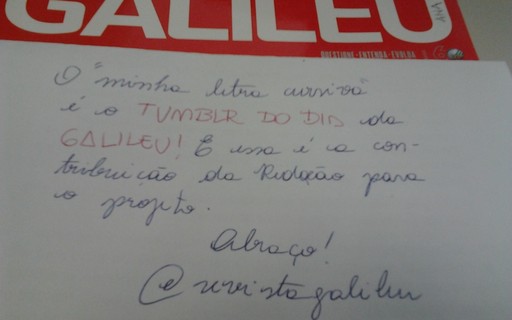 GALILEU
QUESTIONE·ENTENDA·EVOLUA
O "minha letra cursiva"
é o TUMBLR DO DIA da
GALILEU! E essa é a con-
tribuição da Redação para
o projeto.
Abraço!
@revistagalileu